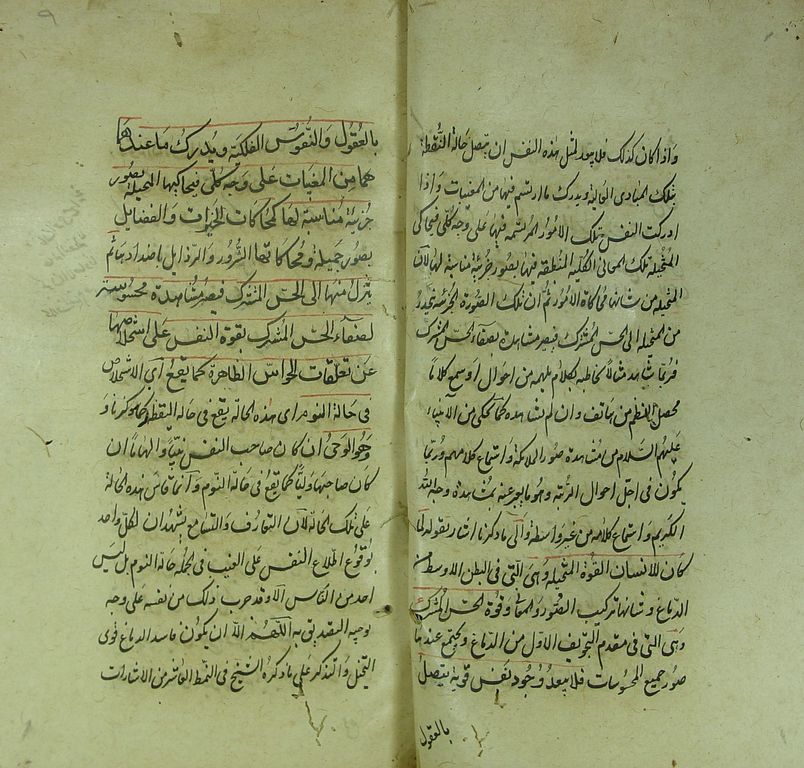 واذا كان كذلك فلا يبعد لمثل هذه النفس ان يتصل حالة اليقظة
بتلك المبادى العالية ويدرك ما ارتسم فيها من المغيبات واذا
ادركت النفس تلك الامور المرتسمة فيها على وجه كلى فيحاكى
المتخيلة تلك المعانى الكلية المنطبعة فيها بصور جزئية مناسبة لها لان
المتخيلة من شانها محاكاة الامور ثم ان تلك الصورة الجزئية تنحدر
من المتخيلة الى الحس المشترك فيصير مشاهدة بصفاء الحس المشترك
فربما شهد مثالا يخاطبه بكلام يلهمه من احوال او سمع كلاما
محصل النظم من هاتف وان لم يشاهده كما يحكى من الانبياء
عليهم السلام من مشاهدة صور الملائكة واستماع كلامهم وربما
يكون فى اجل احوال الرتبة وهو ما يعبر عنه بمشاهدة وجه الله
الكريم واستماع كلامه من غير واسطة والى ما ذكرنا اشار بقوله لما
كان للانسان القوة المتخيلة وهى التى فى البطن الاوسط من
الدماغ وشانها تركيب الصور والمعانى وقوة الحس المشترك
وهى التى فى مقدم التجويف الاول من الدماغ ويجتمع عندها
صور جميع المحسوسات فلا يبعد وجود نفس قوية يتصل
بالعقول
بالعقول والنفوس الفلكية ويدرك ما عندها
هما من المغيبات على وجه كلى فيحاكيها المتخيلة بصور
جزئية مناسبة لها كمحاكات الخيرات والفضايل
بصور جميلة ومحاكاتها الشرور والرذايل باضدادها ثم
يتنزل منها الى الحس المشترك فيصير مشاهدة محسوسة
لصفاء الحس المشترك بقوة النفس على استخلاصها
عن تعلقات الحواس الظاهرة كما يقع اى الاستخلاص
فى حالة النوم اى هذه الحالة يقع فى حالة اليقظة كما ذكرنا و
وهو الوحى ان كان صاحب النفس نبيا والهاما ان
كان صاحبها وليا كما يقع فى حالة النوم وانما قاس هذه الحالة
على تلك الحالة لان التعارف والتسامع يشهدان لكل واحد
بوقوع اطلاع النفس على الغيب فى الجملة حالة النوم بل ليس
احد من الناس الا وقد جرب ذلك من نفسه على وجه
يوجب التصديق به اللهم الا ان يكون فاسد الدماغ قوى
التخيل والتذكر على ما ذكره الشيخ فى النمط العاشر من الاشارات